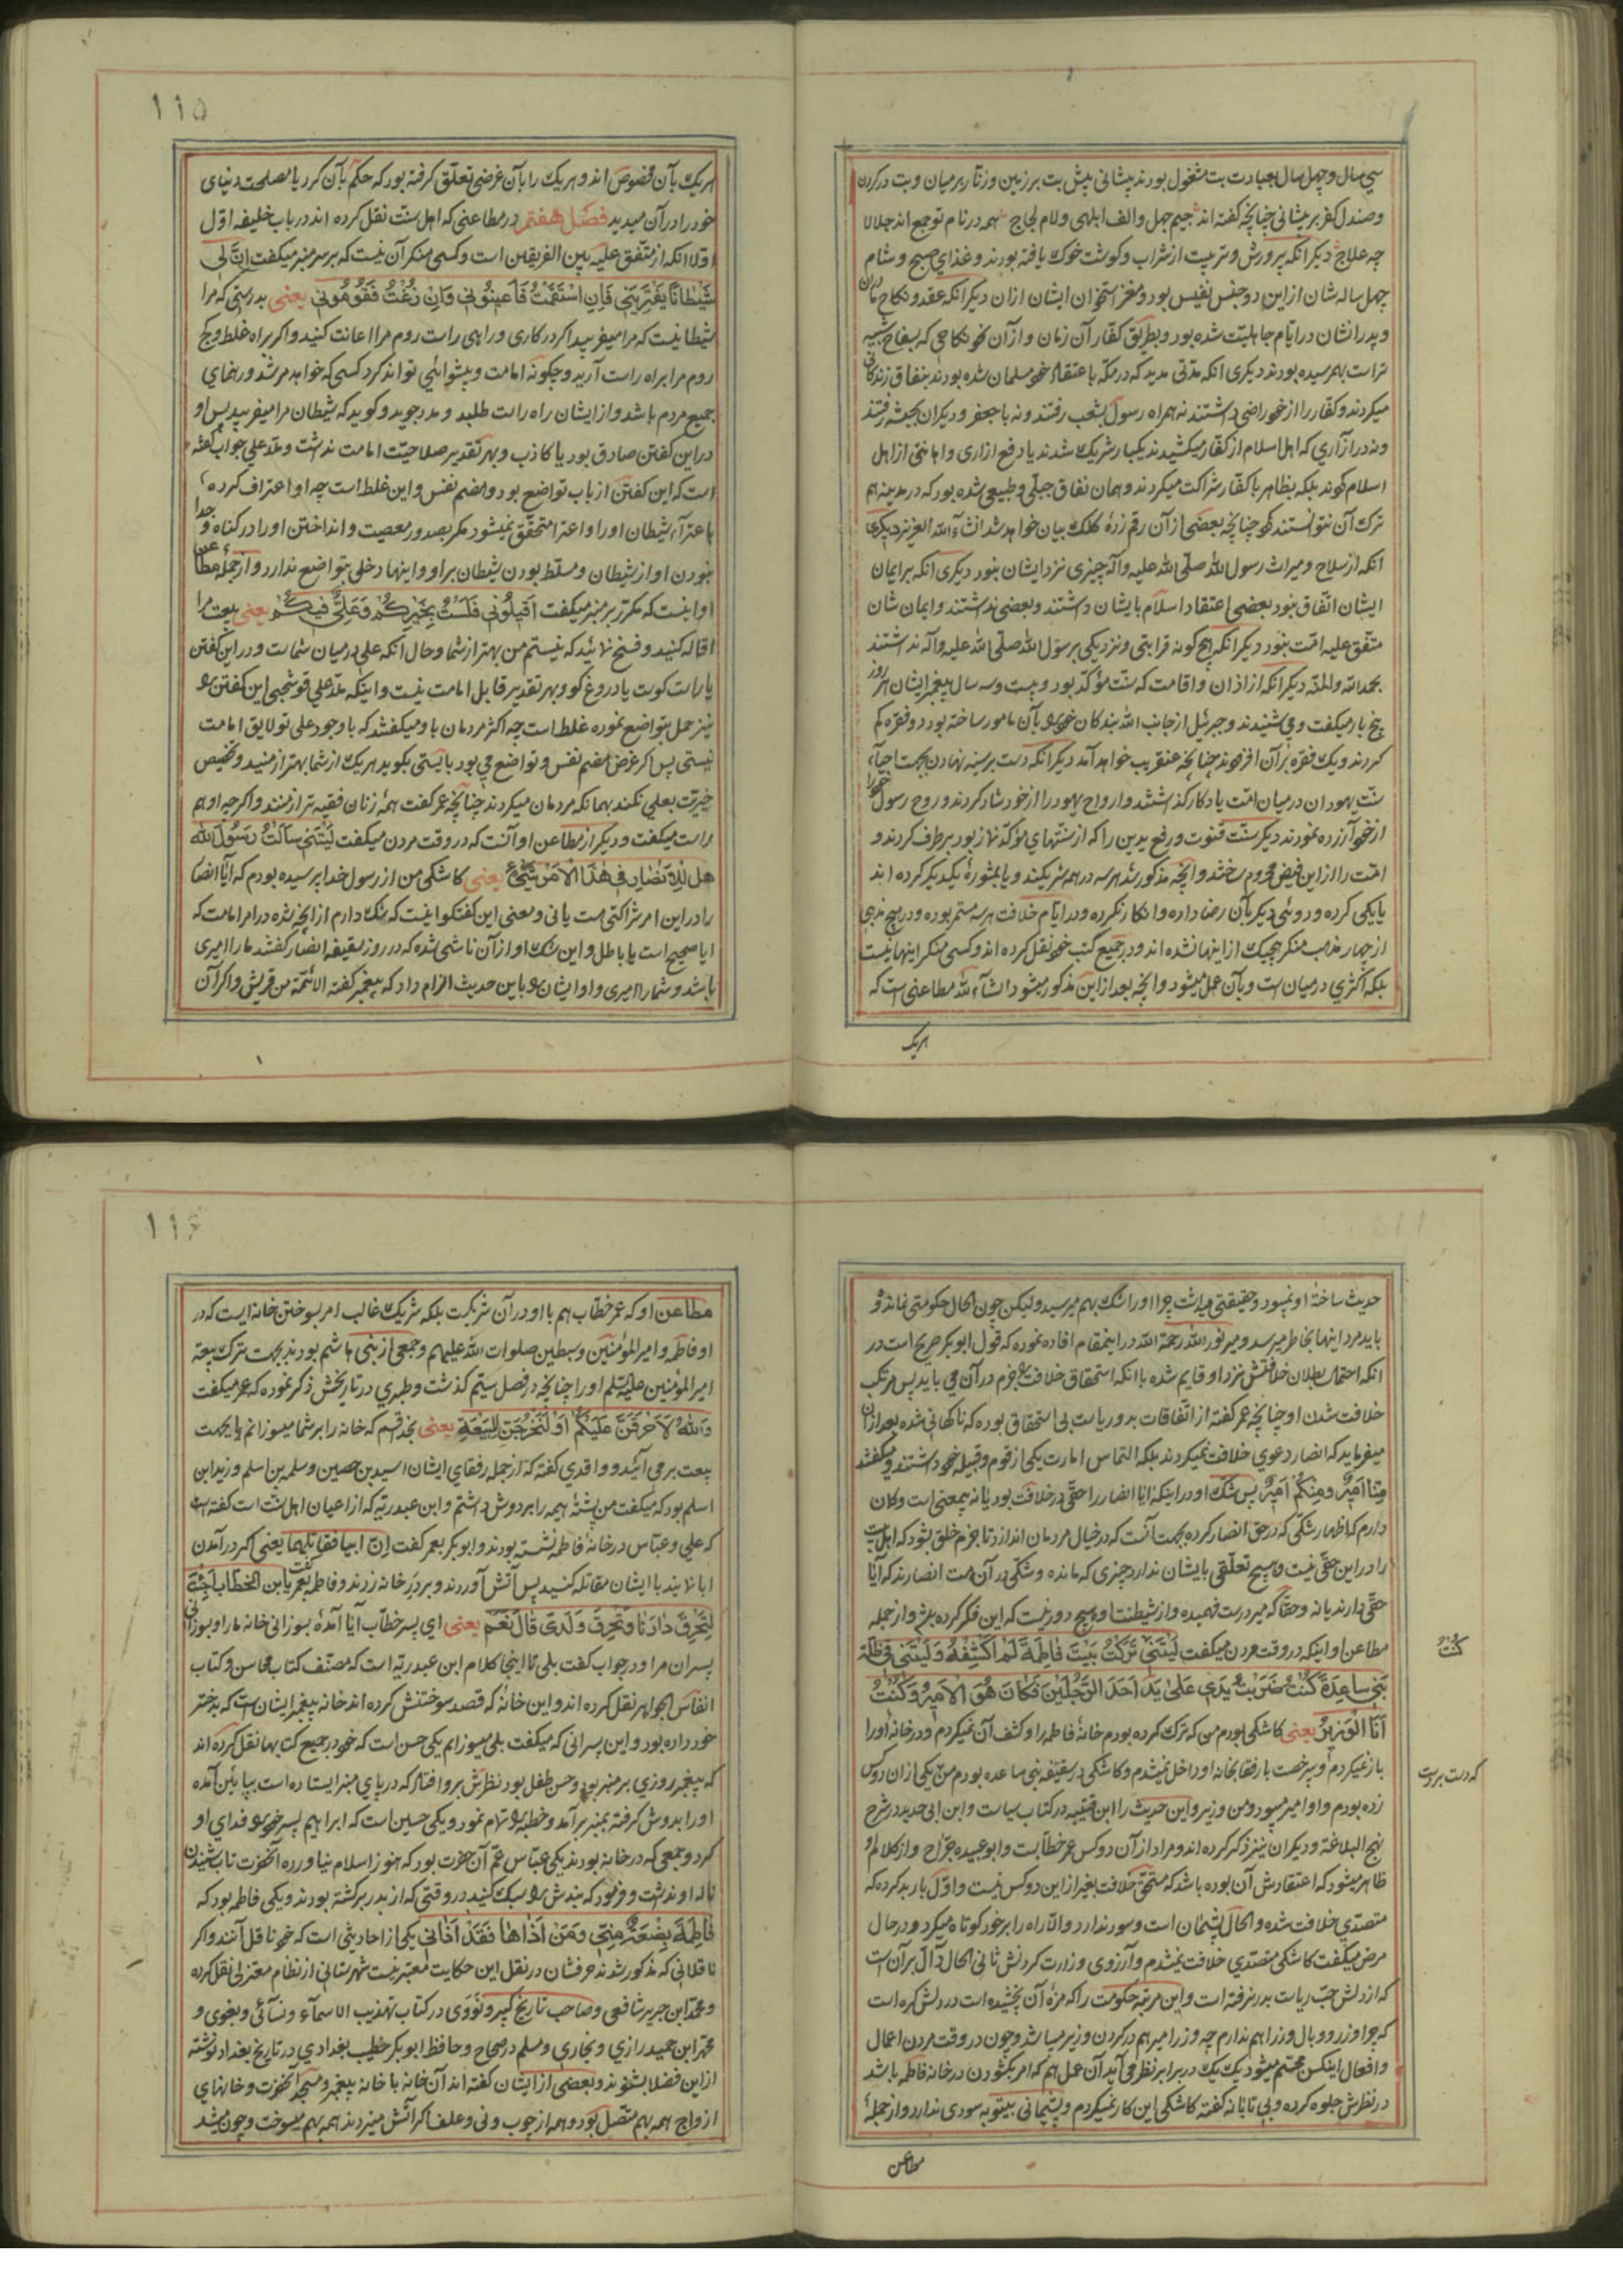 سی سال و چهل سال بعبادت بت مشغول بودند پیشانی پیش بت بر زمین و زنار بر میان و بت در کردن
وصندل کفر بر پیشانی چنانچه کفته اند جیم جهل والف ابلهی ولام لجاج همه در نام تو جمع اند جلالا
چه علاج دیکر انکه پرورش و تربیت از شراب و کوشت خوک یافته بودند و غذای صبح و شام
چهل ساله شان از این دو جنس نفیس بود و مغز استخوان ایشان ازان دیکر انکه عقد و نکاح مادران
و پدرانشان در ایام جاهلیت شده بود و بطریق کفار آن زمان و از آن نحو نکاحی که بسفاح شبیه
تر است بهم رسیده بودند دیکری انکه مدتی مدید که در مکه باعتقاد خود مسلمان شده بودند بنفاق زندکانی
میکردند و کفار را از خود راضی داشتند نه همراه رسول بشعب رفتند و نه با جعفر و دیکران بحبشه رفتند
ونه در ازاری که اهل اسلام از کفار میکشیدند یکبار شریک شدند یا دفع ازاری و اهانتی از اهل
اسلام کردند بلکه بظاهر با کفار شراکت میکردند و همان نفاق جبلی و طبیعی شده بود که در مدینه هم
ترک آن نتوانستند کرد چنانچه بعضی از آن رقم زدهٔ کلک بیان خواهد شد انشاء الله العزیز دیکری
انکه از سلاح و میراث رسول الله صلی الله علیه وآله چیزی نزد ایشان نبود دیکری انکه بر ایمان
ایشان اتفاق نبود بعضی اعتقاد اسلام بایشان داشتند و بعضی نداشتند و ایمان شان
متفق علیه امت نبود دیکر انکه هیچ کونه قرابتی و نزدیکی برسول الله صلی الله علیه وآله نداشتند
بحمد الله والمنه دیکر انکه از اذان و اقامت که سنت مؤکد بود و بیست و سه سال پیغمبر ایشان هر روز
پنج بار میکفت و می شنیدند و جبرئیل از جانب الله بندکان خود را بآن مامور ساخته بود دو فقره کم
کردند و یک فقره بر آن افزودند چنانچه عنقریب خواهد آمد دیکر انکه دست بر سینه نهادن بجهت احیاء
سنت یهودان در میان امت یادکار کذاشتند و ارواح یهود را از خود شاد کردند و روح رسول خدا را
از خود آزرده نمودند دیکر سنت قنوت و رفع یدین را که از سنتهای مؤکد نماز بود بر طرف کردند و
امت را از این فیض محروم ساختند و انچه مذکور شد هر سه در همه شریکند و یا بمشورهٔ یکدیکر کرده اند
یا یکی کرده و دو نفر دیکر بآن رضا داده و انکار نکرده و در ایام خلافت هر سه مستمر بوده و در هیچ مذهبی
از چهار مذهب منکر هیچیک از اینها نشده اند و در جمیع کتب خود نقل کرده اند و کسی منکر اینها نیست
بلکه اکثری در میان است و بآن عمل میشود و انچه بعد از این مذکور میشود انشاء الله مطاعنی است که
هریک
۱۱۵
هریک بآن مخصوص اند و هریک را بآن غرضی تعلق کرفته بود که حکم بآن کرد یا مصلحت دنیای
خود را در آن میدید فصل هفتم در مطاعنی که اهل سنت نقل کرده اند در باب خلیفه اول
اولا انکه از متفق علیه بین الفریقین است و کسی منکر آن نیست که بر سر منبر میکفت اِنَّ لِی
شَیْطَانًا یَغْتَرِیْنِی فَاِنِ اسْتَقَمْتُ فَاَعِینُونِی وَاِنْ زُغْتُ فَقَوِّمُونِی یعنی بدرستی که مرا
شیطانیست که مرا میفریبد اکر در کاری و راهی راست روم مرا اعانت کنید و اکر براه غلط و کج
روم مرا براه راست آرید و چکونه امامت و پیشوائی تواند کرد کسی که خواهد مرشد و رهنمای
جمیع مردم باشد و از ایشان راه راست طلبد و مدد جوید و کوید که شیطان مرا میفریبد پس او
در این کفتن صادق بود یا کاذب و بهر تقدیر صلاحیت امامت نداشت و ملا علی جواب کفته
است که این کفتن از باب تواضع بود و هضم نفس و این غلط است چه او اعتراف کرده
باغراء شیطان او را و اغرا متحقق نمیشود مکر بصدور معصیت و انداختن او را در کناه و جدا
نبودن او از شیطان و مسلط بودن شیطان بر او و اینها دخلی بتواضع ندارد و از جمله مطاعن
او اینست که مکرر بر منبر میکفت اَقِیلُونِی فَلَسْتُ بِخَیْرِکُمْ وَعَلِیٌّ فِیکُمْ یعنی بیعت مرا
اقاله کنید و فسخ نمائید که نیستم من بهتر از شما و حال آنکه علی در میان شماست و در این کفتن
یا راست کوست یا دروغ کو و بهر تقدیر قابل امامت نیست و اینکه ملا علی قوشجی این کفتن را
نیز حمل بتواضع نموده غلط است چه اکثر مردمان باو میکفتند که با وجود علی تو لایق امامت
نیستی پس اکر غرض هضم نفس و تواضع می بود بایستی بکوید هریک از شما بهتر از منید و تخصیص
خیریت بعلی نکند بهمانکه مردمان میکردند چنانچه عمر کفت همهٔ زنان فقیه تر از منند و اکرچه او هم
راست میکفت و دیکر از مطاعن او آنست که در وقت مردن میکفت لَیْتَنِی سَاَلْتُ رَسُولَ اللهِ
هَل لِلْاَنْصَارِ فِی هٰذَا الْاَمْرِ شَیْءٌ یعنی کاشکی من از رسول خدا پرسیده بودم که آیا انصار
را در این امر شراکتی هست یا نی و معنی این کفتکو اینست که شک دارم از انچه شده در امر امامت که
ایا صحیح است یا باطل و این شک او از آن ناشی شده که در روز سقیفه انصار کفتند ما را امیری
باشد و شما را امیری و او ایشان را باین حدیث الزام داد که پیغمبر کفته الائمة من قریش و اکر آن
حدیث ساختهٔ او نمیبود و حقیقتی میداشت چرا او را شک بهم میرسید و لیکن چون الحال حکومتی نمانده و
باید مرد اینها بخاطر میرسد و میر نور الله رحمة الله در اینمقام افاده نموده که قول ابوبکر صریح است در
انکه احتمال بطلان خلافتش نزد او قایم شده با انکه استحقاق خلافت را جزم در آن می باید پس مرتکب
خلافت شدن او چنانچه عمر کفته از اتفاقات بد و ریاست بی استحقاق بوده که ناکهانی شده بعد ازان
میفرماید که انصار دعوی خلافت نمیکردند بلکه التماس امارت یکی از قوم و قبیله خود داشتند و میکفتند
مِنَّا اَمِیرٌ وَمِنْکُمْ اَمِیرٌ پس شک او در اینکه ایا انصار را حقی در خلافت بود یا نه بیمعنی است و کمان
دارم که اظهار شکی که در حق انصار کرده بجهت آنست که در خیال مردمان اندازد تا جزم خلق بشود که اهل بیت
را در این حقی نیست و هیچ تعلقی بایشان ندارد چیزی که مانده و شکی در آن هست انصارند که آیا
حقی دارند یا نه و حقا که میر درست فهمیده و از شیطنت او هیچ دور نیست که این فکر کرده باشد و از جمله
مطاعن او اینکه در وقت مردن میکفت لَیْتَنِی تَرَکْتُ بَیْتَ فَاطِمَةَ لَمْ اَکْشِفْهُ وَلَیْتَنِی فِی ظُلَّةِ
بَنِی سَاعِدَةَ کُنْتُ ضَرَبْتُ یَدِی عَلٰی یَدِ اَحَدِ الرَّجُلَیْنِ فَکَانَ هُوَ الْاَمِیرُ وَکُنْتُ
اَنَا الْوَزِیرُ یعنی کاشکی بودم من که ترک کرده بودم خانهٔ فاطمه را و کشف آن نمیکردم و در خانهٔ او را
باز نمیکردم و بیرخصت با رفقا بخانه او داخل نمیشدم و کاشکی در سقیفه بنی ساعده بودم من یکی ازان دو کس
زده بودم و او امیر میبود و من وزیر و این حدیث را ابن قتیبه در کتاب سیاست و ابن ابی حدید در شرح
نهج البلاغة و دیکران نیز ذکر کرده اند و مراد از آن دو کس عمر خطابست و ابو عبیده جراح و از کلام او
ظاهر میشود که اعتقادش آن بوده باشد که مستحق خلافت بغیر از این دو کس نیست و اول بار بد کرده که
متصدی خلافت شده و الحال پشیمان است و سود ندارد و الا راه را بر خود کوتاه میکرد و در حال
مرض میکفت کاشکی متصدی خلافت نمیشدم و آرزوی وزارت کردنش ثانی الحال دال بر آن است
که از دلش حب ریاست بدر نرفته است و این مرتبه حکومت را که مزهٔ آن چشیده است در دلش کره است
که چرا وزر و وبال وزرا هم ندارم چه وزر امیر هم در کردن وزیر میباشد و چون در وقت مردن اعمال
و افعال اینکس مجسم میشود یک یک در برابر نظر می آید آن عمل هم که امر بکشودن در خانه فاطمه باشد
در نظرش جلوه کرده و بی تابانه کفته کاشکی این کار نمیکردم و پشیمانی بیتوبه سودی ندارد و از جملهٔ
کُنْتُ
که دست بر دست
مطاعن
۱۱۶
مطاعن او که عمر خطاب هم با او در آن شریکست بلکه شریک غالب امر بسوختن خانه ایست که در
او فاطمه و امیر المؤمنین و سبطین صلوات الله علیهم و جمعی از بنی هاشم بودند بجهت ترک بیعة
امیر المؤمنین علیه السلم او را چنانچه در فصل سیتم کذشت و طبری در تاریخش ذکر نموده که عمر میکفت
وَاللهِ لَاُحْرِقَنَّ عَلَیْکُمْ اَوْ لَتَخْرُجَنَّ لِلْبَیْعَةِ یعنی بخدا قسم که خانه را بر شما میسوزانم یا بجهت
بیعت برمی آئید و واقدی کفته که از جمله رفقای ایشان اسید بن حصین و سلمه بن اسلم و زید ابن
اسلم بود که میکفت من پشتهٔ هیمه را بر دوش داشتم و ابن عبد ربه که از اعیان اهل سنت است کفته است
که علی و عباس در خانهٔ فاطمه نشسته بودند و ابوبکر بعمر کفت اِنْ اَبَیَا فَقَاتِلْهُمَا یعنی اکر در آمدن
ابا نمایند با ایشان مقاتله کنید پس آتش آوردند و بر در خانه زدند و فاطمه بعمر کفت یا ابن الخطاب اَجِئْتَ
لِتُحْرِقَ دَارَنَا وَتُحْرِقَ وَلَدِی قَالَ نَعَمْ یعنی ای پسر خطاب آیا آمدهٔ بسوزانی خانه ما را و بسوزانی
پسران مرا و در جواب کفت بلی تا اینجا کلام ابن عبد ربه است که مصنف کتاب محاسن و کتاب
انفاس الجواهر نقل کرده اند و این خانهٔ که قصد سوختنش کرده اند خانه پیغمبر ایشان است که بدختر
خود داده بود و این پسرانی که میکفت بلی میسوزانم یکی حسن است که خود در جمیع کتابها نقل کرده اند
که پیغمبر روزی بر منبر بود و حسن طفل بود نظرش بر او افتاد که در پای منبر ایستاده است بپایین آمده
او را بدوش کرفته بمنبر بر آمد و خطبه را تمام نمود و یکی حسین است که ابراهیم پسر خود را فدای او
کرد و جمعی که در خانه بودند یکی عباس عم آن حضرت بود که هنوز اسلام نیاورده آنحضرت تاب شنیدن
ناله او نداشت و فرمود که بندش را سبک کنید در وقتی که از بدر برکشته بودند و یکی فاطمه بود که
فَاطِمَةُ بِضْعَةٌ مِنِّی وَمَنْ اَذَاهَا فَقَدْ اَذَانِی یکی از احادیثی است که خود ناقل آنند و اکر
ناقلانی که مذکور شدند حرفشان در نقل این حکایت معتبر نیست شهرستانی از نظام معتزلی نقل کرده
و محمد ابن جریر شافعی و صاحب تاریخ کبیر و نووی در کتاب تهذیب الاسماء و نسائی و بغوی و
محمد ابن حمید رازی و بخاری و مسلم در صحاح و حافظ ابوبکر خطیب بغدادی در تاریخ بغداد نوشته
از این فضلا بشنوند و بعضی از ایشان کفته اند آن خانه با خانه پیغمبر و مسجد آنحضرت و خانهای
ازواج همه بهم متصل بود و همه از چوب و نی و علف اکر آتش میزدند همه بهم میسوخت و چون میشد